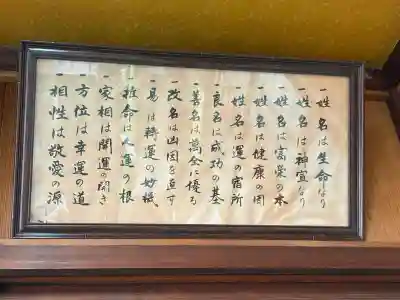 一 姓名は生命なり
一 姓名は神宣なり
一 姓名は富栄の本
一 姓名は健康の因
一 姓名は運の宿所
一 良名は成功の基
一 善名は萬金に優る
一 改名は凶因を直す
一 易は轉運の妙機
一 推命は人運の根
一 家相は開運の開き
一 方位は幸運の道
一 相性は敬愛の源